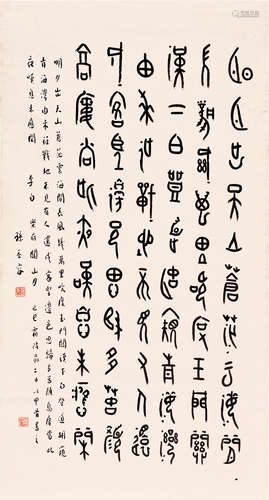 明月出天山蒼茫雲海間
長風幾萬里吹度玉門關
漢下白登道胡窺青海灣
由來征戰地不見有人還
戍客望邊色思歸多苦顏
高樓當此夜嘆息未應閒
明月出天山蒼茫雲海間長風幾萬里吹度玉門關漢下白登道胡窺
青海灣由來征戰地不見有人還戍客望邊色思歸多苦顏高樓當此
夜嘆息未應閒 李白 樂府關山月 己巳霜降前二日